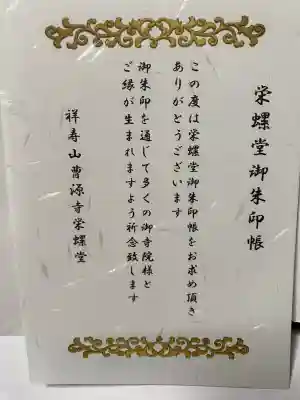 栄螺堂御朱印帳
この度は栄螺堂御朱印帳をお求め頂き
ありがとうございます
御朱印を通じて多くの御寺院様と
ご縁が生まれますよう祈念致します
祥寿山曹源寺栄螺堂